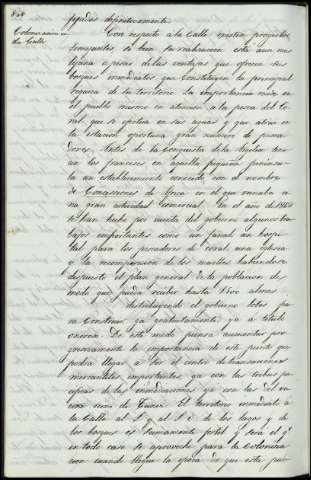 Colonizacion
La Calle
Con respecto a La Calle existen proyectos
semejantes, si bien su realizacion esta aun mas
lejana a pesar de las ventajas que ofrecen sus
bosques inmediatos que constituyen la principal
riqueza de su territorio. La importancia reside en
el pueblo mismo en atencion a la pesca del Co-
ral que se esplota en sus aguas y que atrae en
la estacion oportuna gran numero de pesca-
dores. Antes de la Conquista de la Argelia teni-
an los franceses en aquella pequeña peninsu-
la un establecimiento conocido con el nombre
de Concesiones de Africa en el que reinaba u-
na gran actividad comercial. En el año de 1860
se han hecho por cuenta del gobierno algunos tra-
bajos importantes como un fanal un hospi-
tal para los pescadores de coral, una iglesia
y la recomposicion de los muelles habiendose
dispuesto el plan general de la poblacion de
modo que pueda contar hasta 1500 almas
distribuyendo el gobierno lotes pa-
ra Construir ya gratuitamente ya a titulo
oneroso. De este modo piensa aumentar pro-
gresivamente la importancia de este punto que
podria llegar a ser el centro de transacciones
mercantiles importantes ya con las tribus pa-
cificas de las inmediaciones ya con las del ve-
cino reino de Tunez. El territorio inmediato a
la Calle al S. y al S. E. de los lagos y de
los bosques es sumamente fertil y será el qe
en todo caso se aproveche para la Coloniza-
cion cuando llegue la epoca de que este pun-